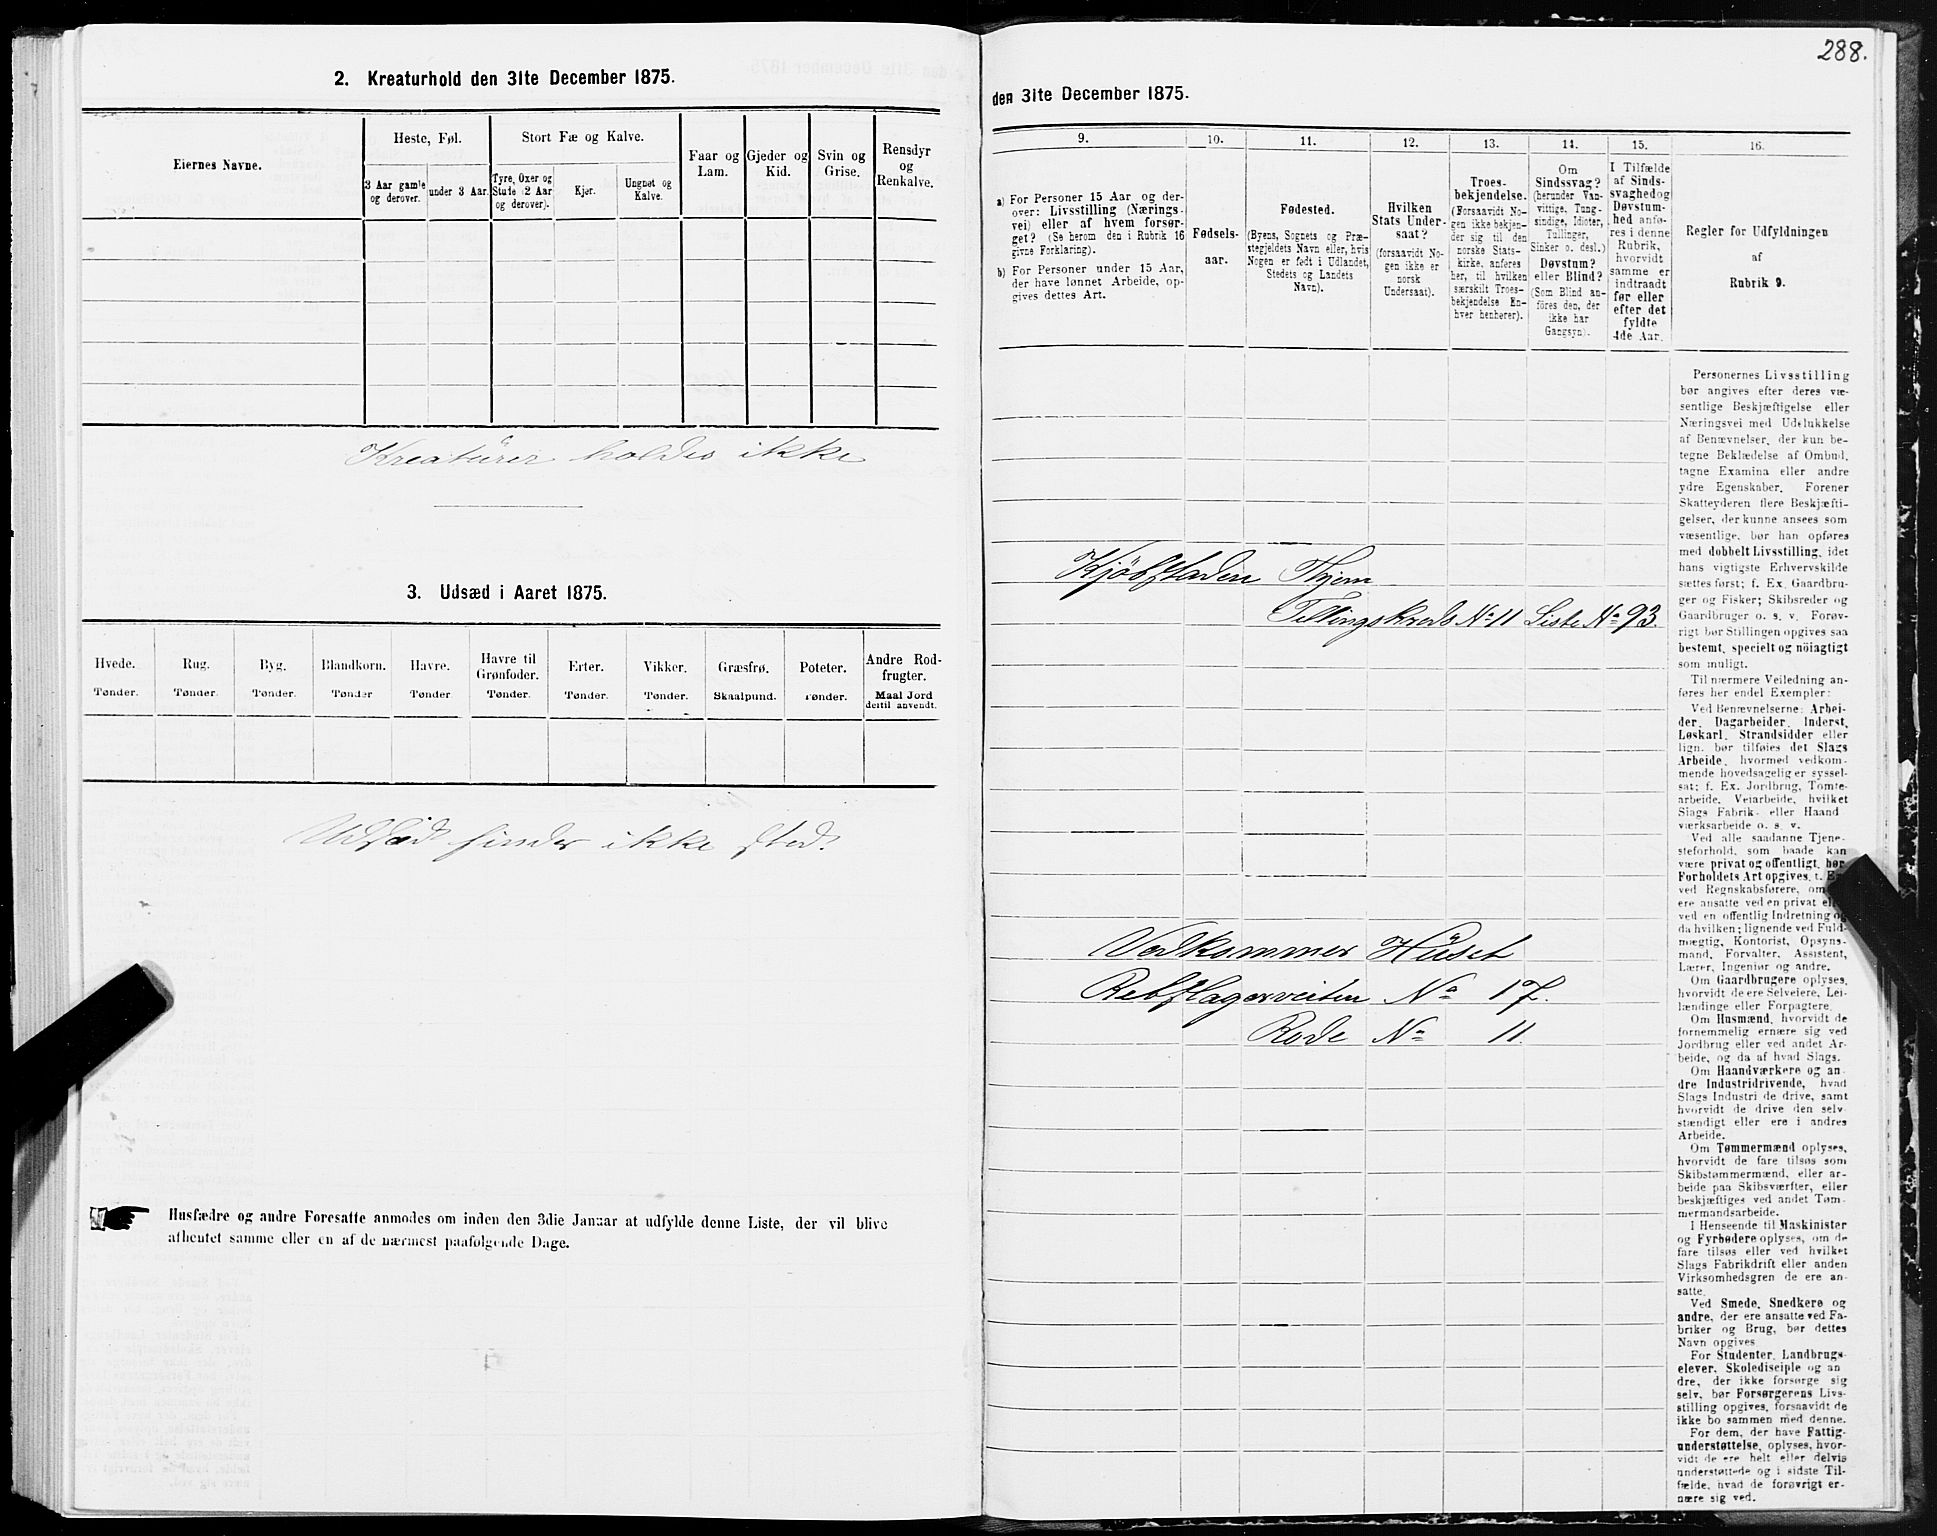 2. Kreaturhold den 31te December 1875.
Eiernes Navne.
Heste, Føl.
Stort Fæ og Kalve.
Faar og
Lam.
Gjeder og
Kid.
Svin og
Grise.
Rensdyr
og
Renkalve.
3 Aar gamle
og derover.
under 3 Aar.
Tyre, Oxer og
Stude (2 Aar
og derover).
Kjør.
Ungnøt og
Kalve.
Kreatürer holdes ikke
3. Udsæd i Aaret 1875.
Hvede.
Rug.
Byg.
Blandkorn.
Havre.
Havre til
Grønfoder.
Erter.
Vikker.
Græsfrø.
Poteter.
Andre Rod-
frugter.
Tønder.
Tønder.
Tønder.
Tønder
Tønder
Tønder.
Tønder.
Tønder.
Skaalpund.
Tønder.
Maal Jord
dertil anvendt.
Udsæd finder ikke sted.
Husfædre og andre Foresatte anmodes om inden den 3die Januar at udfylde denne Liste, der vil blive
afhentet samme eller en af de nærmest paafølgende Dage.
288.
den 31te December 1875.
9.
10.
11.
12.
13.
14.
15.
16.
a) For Personer 15 Aar og der-
over: Livsstilling (Nærings-
vei) eller af hvem forsør-
get? (Se herom den i Rubrik 16
givne Forklaring).
b) For Personer under 15 Aar,
der have lønnet Arbeide, op-
gives dettes Art.
Fødsels-
aar.
Fødested.
(Byens, Sognets og Præ-
stegjeldets Navn eller, hvis
Nogen er født i Udlandet,
Stedets og Landets
Navn).
Hvilken
Stats Under-
saat?
(forsaavidt No-
gen ikke er
norsk
Undersaat).
Troes-
bekjendelse.
(Forsaavidt No-
gen ikke bekjen-
der sig til den
norske Stats-
kirke, anføres
her, til hvilken
særskilt Troes-
bekjendelse En-
hver henhører).
Om
Sindssvag?
(herunder Van-
vittige, Tung-
sindige, Idioter,
Tullinger,
Sinker o. desl.)
Døvstum?
eller Blind?
(Som Blind an-
føres den, der
ikke har
Gangsyn).
I Tilfælde
af Sinds-
svaghed og
Døvstum-
hed anfø-
res i denne
Rubrik,
hvorvidt
samme er
indtraadt
før eller
efter det
fyldte
4de Aar.
Regler for Udfyldningen
af
Rubrik 9.
Kjöbstaden Thjem
Tellingskreds No 11 Liste No 93.
Vedkommer Hüset
Rebslagerveiten No 17.
Rode No 11.
Personernes Livsstilling
bør angives efter deres væ-
sentlige Beskjæftigelse eller
Næringsvei med Udelukkelse
af Benævnelser, der kun be-
tegne Beklædelse af Ombud,
tagne Examina eller andre
ydre Egenskaber. Forener
Skatteyderen flere Beskjæfti-
gelser, der kunne ansees som
væsentlige, bør han opføres
med dobbelt Livsstilling, idet
hans vigtigste Erhvervskilde
sættes først; f. Ex. Gaardbru-
ger og Fisker; Skibsreder og
Gaardbruger o. s. v. Forøv-
rigt bør Stillingen opgives saa
bestemt, specielt og nöiagtigt
som muligt.
Til nærmere Veiledning an-
føres her endel Exempler:
Ved Benævnelserne: Arbei-
der, Dagarbeider, Inderst,
Løskarl, Strandsidder eller
lign. bør tilføies det Slags
Arbeide, hvormed vedkom-
mende hovedsagelig er syssel-
sat; f. Ex. Jordbrug, Tomte-
arbeide, Veiarbeide, hvilket
Slags Fabrik- eller Haand
værksarbeide o. s. v.
Ved alle saadanne Tjene-
steforhold, som baade kan
være privat og offentligt, bør
Forholdets Art opgives, t. E
ved Regnskabsførere, om
ere ansatte ved en privat el
ved en offentlig Indretning og
da hvilken; lignende ved Fuld-
mægtig, Kontorist, Opsyns-
mand, Forvalter, Assistent,
Lærer, Ingeniør og andre.
Om Gaardbrugere oplyses,
hvorvidt de ere Selveiere, Lei-
lændinge eller Forpagtere.
Om Husmænd, hvorvidt de
fornemmelig ernære sig ved
Jordbrug eller ved andet Ar-
beide, og da af hvad Slags.
Om Haandværkere og an-
dre Industridrivende, hvad
Slags Industri de drive, samt
hvorvidt de drive den selv-
stændigt eller ere i andres
Arbeide.
Om Tømmermænd oplyses,
hvorvidt de fare tilsøs som
Skibstømmermænd, eller ar-
beide paa Skibsværfter, eller
beskjæftiges ved andet Tøm-
mermandsarbeide.
I Henseende til Maskinister
og Fyrbødere oplyses, om de
fare tilsøs eller ved hvilket
Slags Fabrikdrift eller anden
Virksomhedsgren de ere an-
satte.
Ved Smede, Snedkere og
andre, der ere ansatte ved Fa-
briker og Brug, bør dettes
Navn opgives
For Studenter, Landbrugs-
elever, Skoledisciple og an
dre, der ikke forsørge sig
selv, bør Forsørgerens Livs-
stilling opgives, forsaavidt de
ikke bo sammen med denne.
For dem, der have Fattig-
understøttelse, oplyses, hvor-
vidt de ere helt eller delvis
understøttede og i sidste Til-
fælde, hvad de forøvrigt er-
nære sig ved.